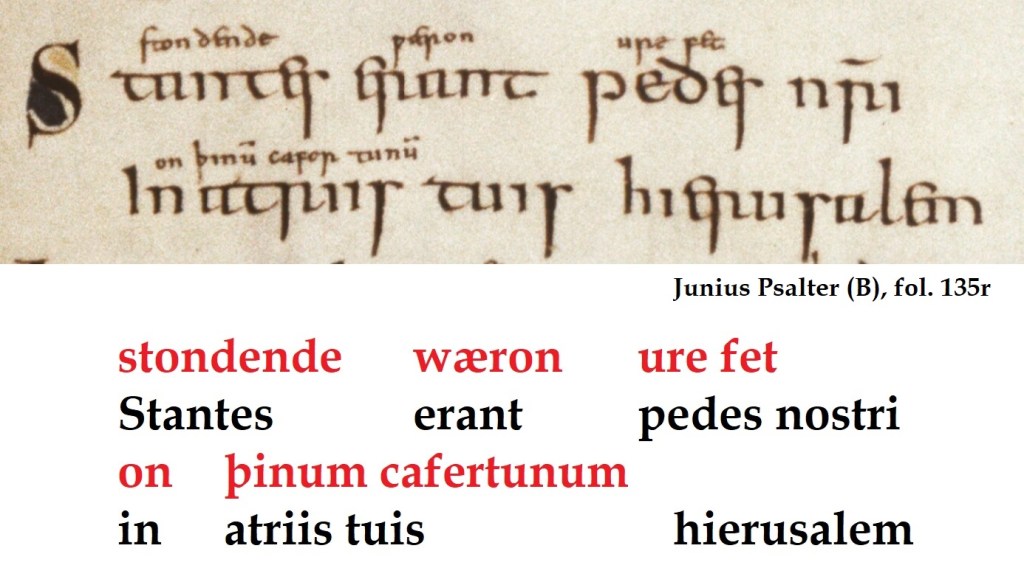 stondende wæron ure fet
Stantes erant pedes nr̄i
on þinū cafertunū
In atriis tuis hierusalem
Junius Psalter (B), fol. 135r
stondende wæron ure fet
Stantes erant pedes nostri
on þinum cafertunum
in atriis tuis hierusalem